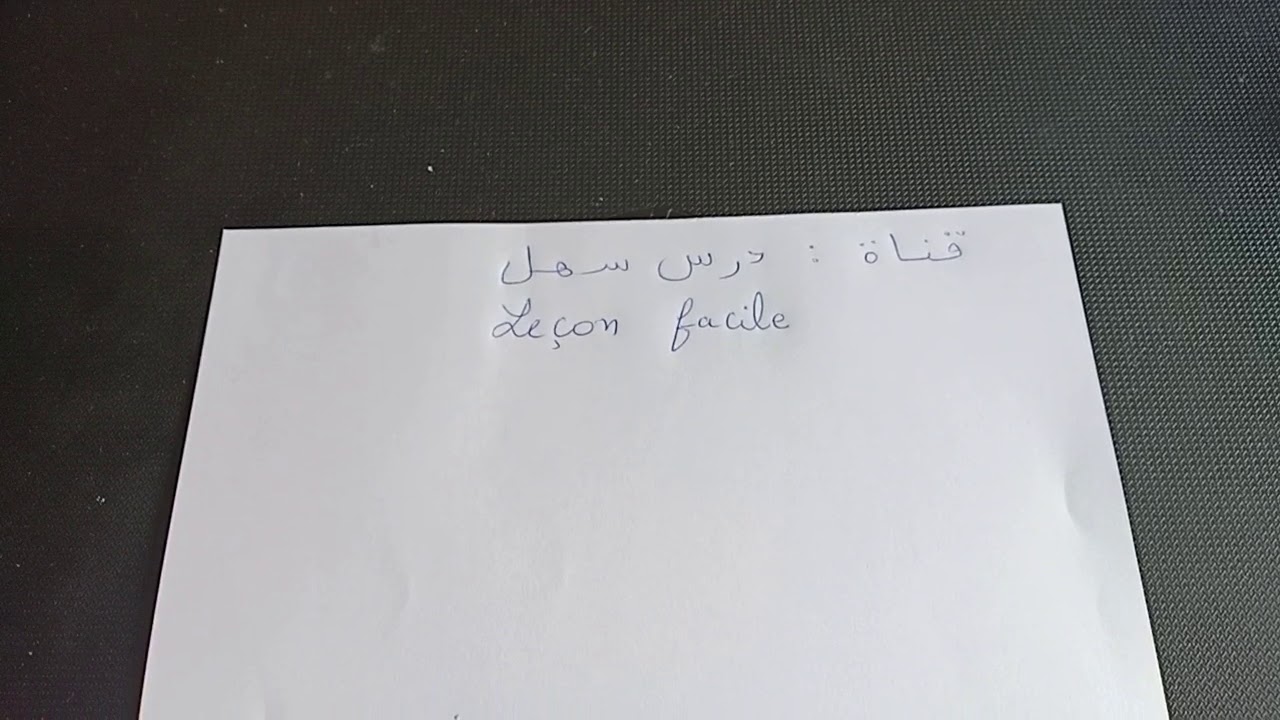 قناة : درس سهل
Leçon facile